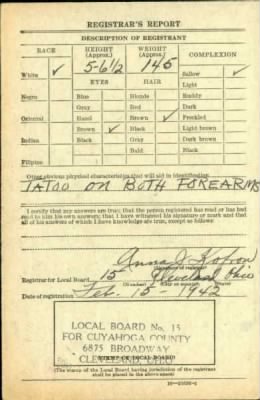 REGISTRAR'S REPORT
DESCRIPTION OF REGISTRANT
RACE HEIGHT (Approx.) WEIGHT (Approx.) COMPLEXION
White ✓ 5-6½ 145 Sallow ✓
EYES HAIR Light
Negro Blue Blonde Ruddy
Gray Red Dark
Oriental Hazel Brown ✓ Freckled
Brown ✓ Black Light brown
Indian Black Gray Dark brown
Bald Black
Filipino
Other obvious physical characteristics that will aid in identification
TATOO ON BOTH FOREARMS
I certify that my answers are true; that the person registered has read or has had
read to him his own answers; that I have witnessed his signature or mark and that
all of his answers of which I have knowledge are true, except as follows:
Anna
Registrar for Local Board 15 Cleveland Ohio
Date of registration Feb. 15 - 1942
LOCAL BOARD No. 15
FOR CUYAHOGA COUNTY
6875 BROADWAY
CLEVELAND, OHIO
(STAMP OF LOCAL BOARD)
(The stamp of the Local Board having jurisdiction of the registrant
shall be placed in the above space.)